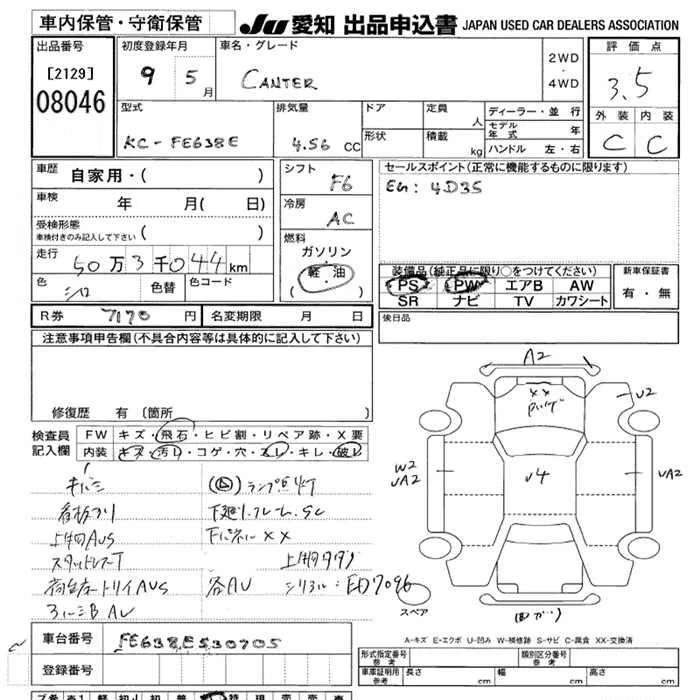 車内保管・守衛保管
JU 愛知 出品申込書 JAPAN USED CAR DEALERS ASSOCIATION
出品番号
[2129]
08046
初度登録年月
9 5月
車名・グレード
CANTER
2WD
・
4WD
評価点
3.5
外装 内装
C C
型式
KC-FE638E
排気量
4.56 CC
ドア
形状
定員 人
積載 kg
ディーラー・並行
モデル年式 年
ハンドル 左・右
車歴
自家用・( )
車検
年 月( 日)
受検形態
車検付きのみ記入して下さい ( )
走行
50万3千044km
色
シロ
色替
色コード
シフト
F6
冷房
AC
燃料
ガソリン
軽・油
( )
セールスポイント(正常に機能するものに限ります)
EG: 4D35
装備品(純正品に限り○をつけてください)
PS PW エアB AW
SR ナビ TV カワシート
新車保証書
有・無
R券 7170 円
名変期限 月 日
後日品
注意事項申告欄(不具合内容等は具体的に記入して下さい)
修復歴 有 (箇所 )
検査員
記入欄
FW キズ・飛石・ヒビ割・リペア跡・X要
内装 キズ・汚レ・コゲ・穴・スレ・キレ・破レ
ランプ点灯
下廻リフレームSC
荷台 トリイAUS
各AU シリアル:ED7096
A2
XX
U2
W2
UA2
U4
UA2
スペア
A-キズ E-エクボ U-凹み W-補修跡 S-サビ C-腐食 XX-交換済
車台番号
FE638E530705
登録番号
形式指定番号
参考
類別区分番号
参考
車庫証明用
参考
長さ cm
幅 cm
高さ cm